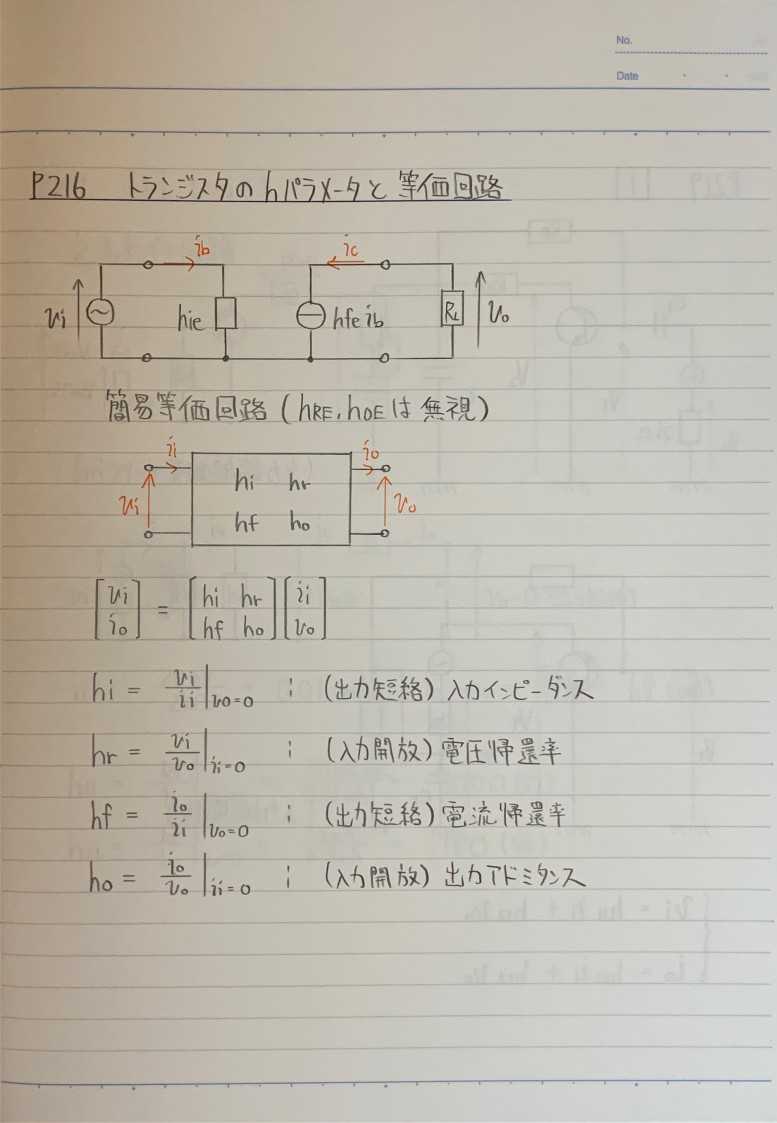 No.
Date
P216 トランジスタのhパラメータと等価回路
ib ic
vi hie hfe ib RL vo
簡易等価回路(hRE, hOEは無視)
ii io
vi hi hr vo
hf ho
[vi io] = [hi hr hf ho][ii vo]
hi = vi/ii|vo=0 : (出力短絡)入力インピーダンス
hr = vi/vo|ii=0 : (入力開放)電圧帰還率
hf = io/ii|vo=0 : (出力短絡)電流帰還率
ho = io/vo|ii=0 : (入力開放)出力アドミタンス